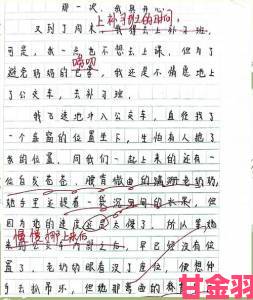 那一次，我真开心
上补习班的时间，
又到了周末，我得去上补习班，
可是，我一点也不想去上课，但为了
避免妈妈的
唠叨
我还是不情愿地上
了公交车，去补习班。
我飞速地冲入公交车，直径找了
一个靠窗的位置坐下，生怕有人抢了
我的位置，同我们一起上来的还有一
位白发苍苍，腰有微曲的
老奶奶，
她手里还提着一袋沉
的水果，但
因为她的速度还是太慢了，所以等她
慢慢挪上来后
早已经没有位
置了，老奶奶眼看没了座位，便想伸
手去抓吊环，但她那弯曲的
甘金羽